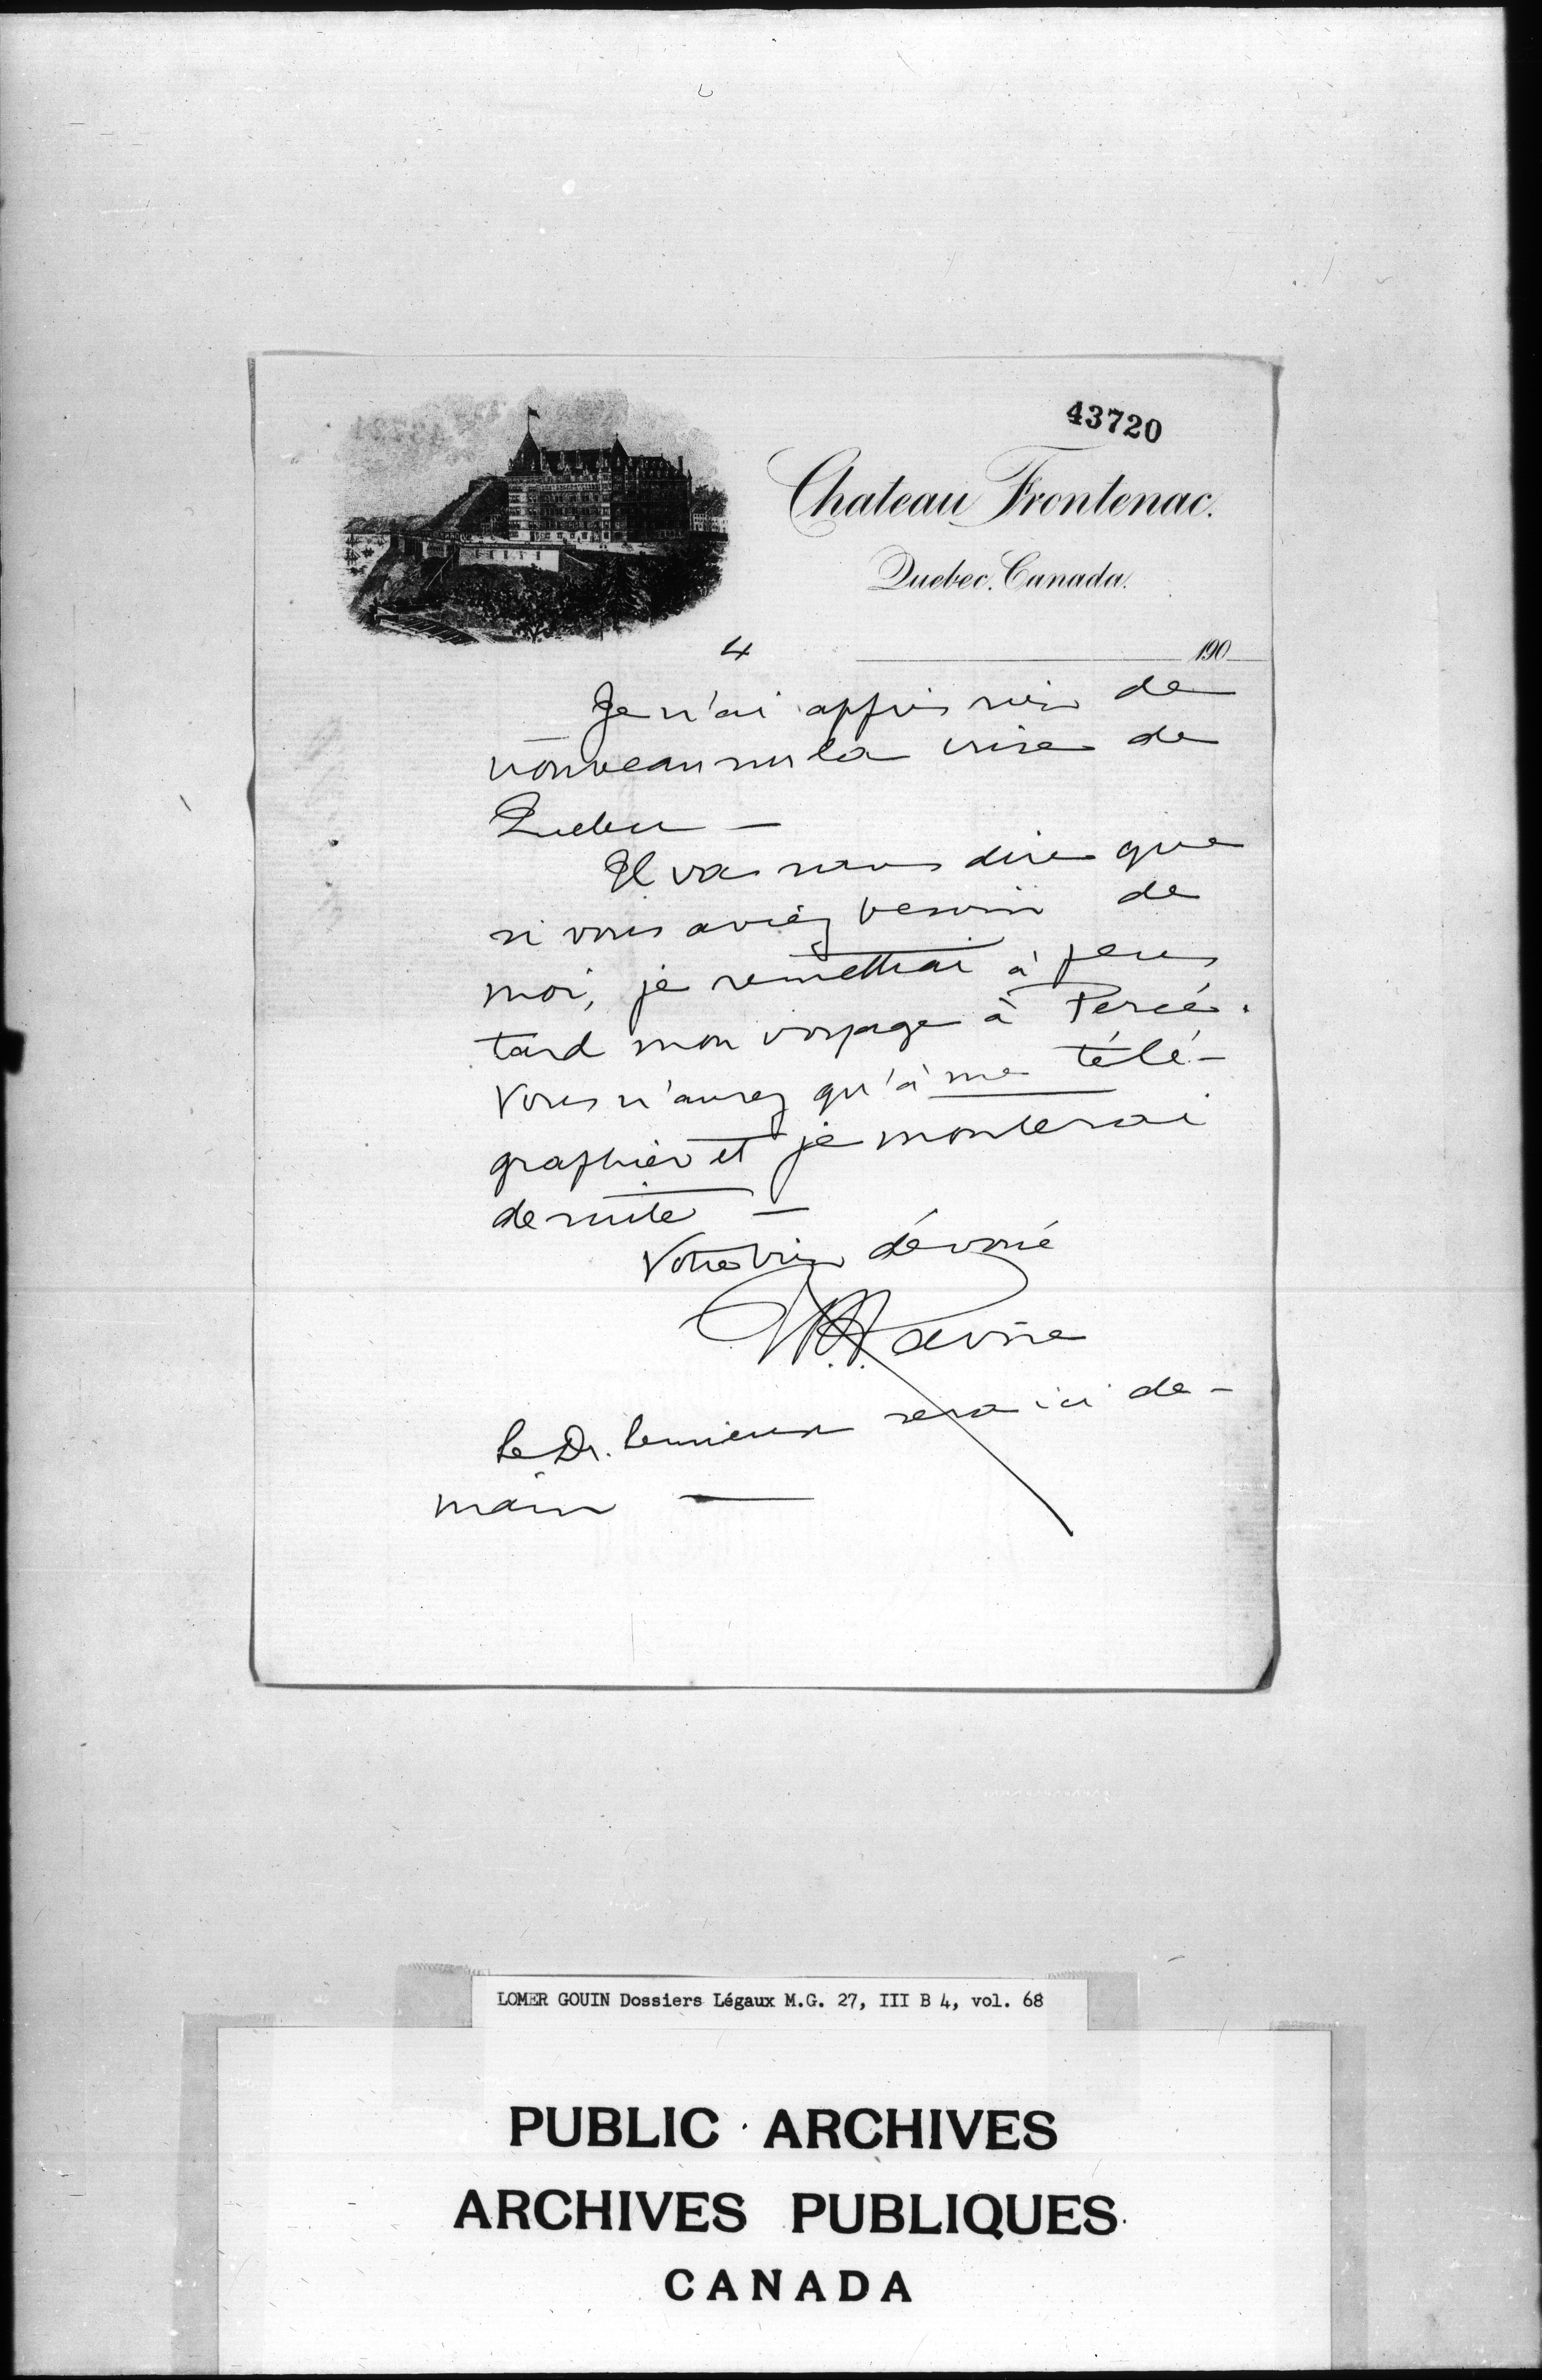 43720
Chateau Frontenac.
Quebec. Canada.
4
190
Je n'ai appris rien de
nouveau sur la crise de
Quebec —
Il va sans dire que
si vous aviez besoin de
moi, je remettrai à plus
tard mon voyage à Percé.
Vous n'aurez qu'à me télé-
graphier et je monterai
de suite —
Votre bien dévoué
Le Dr. Lemieux sera ici de-
main —
LOMER GOUIN Dossiers Légaux M.G. 27, III B 4, vol. 68
PUBLIC ARCHIVES
ARCHIVES PUBLIQUES
CANADA